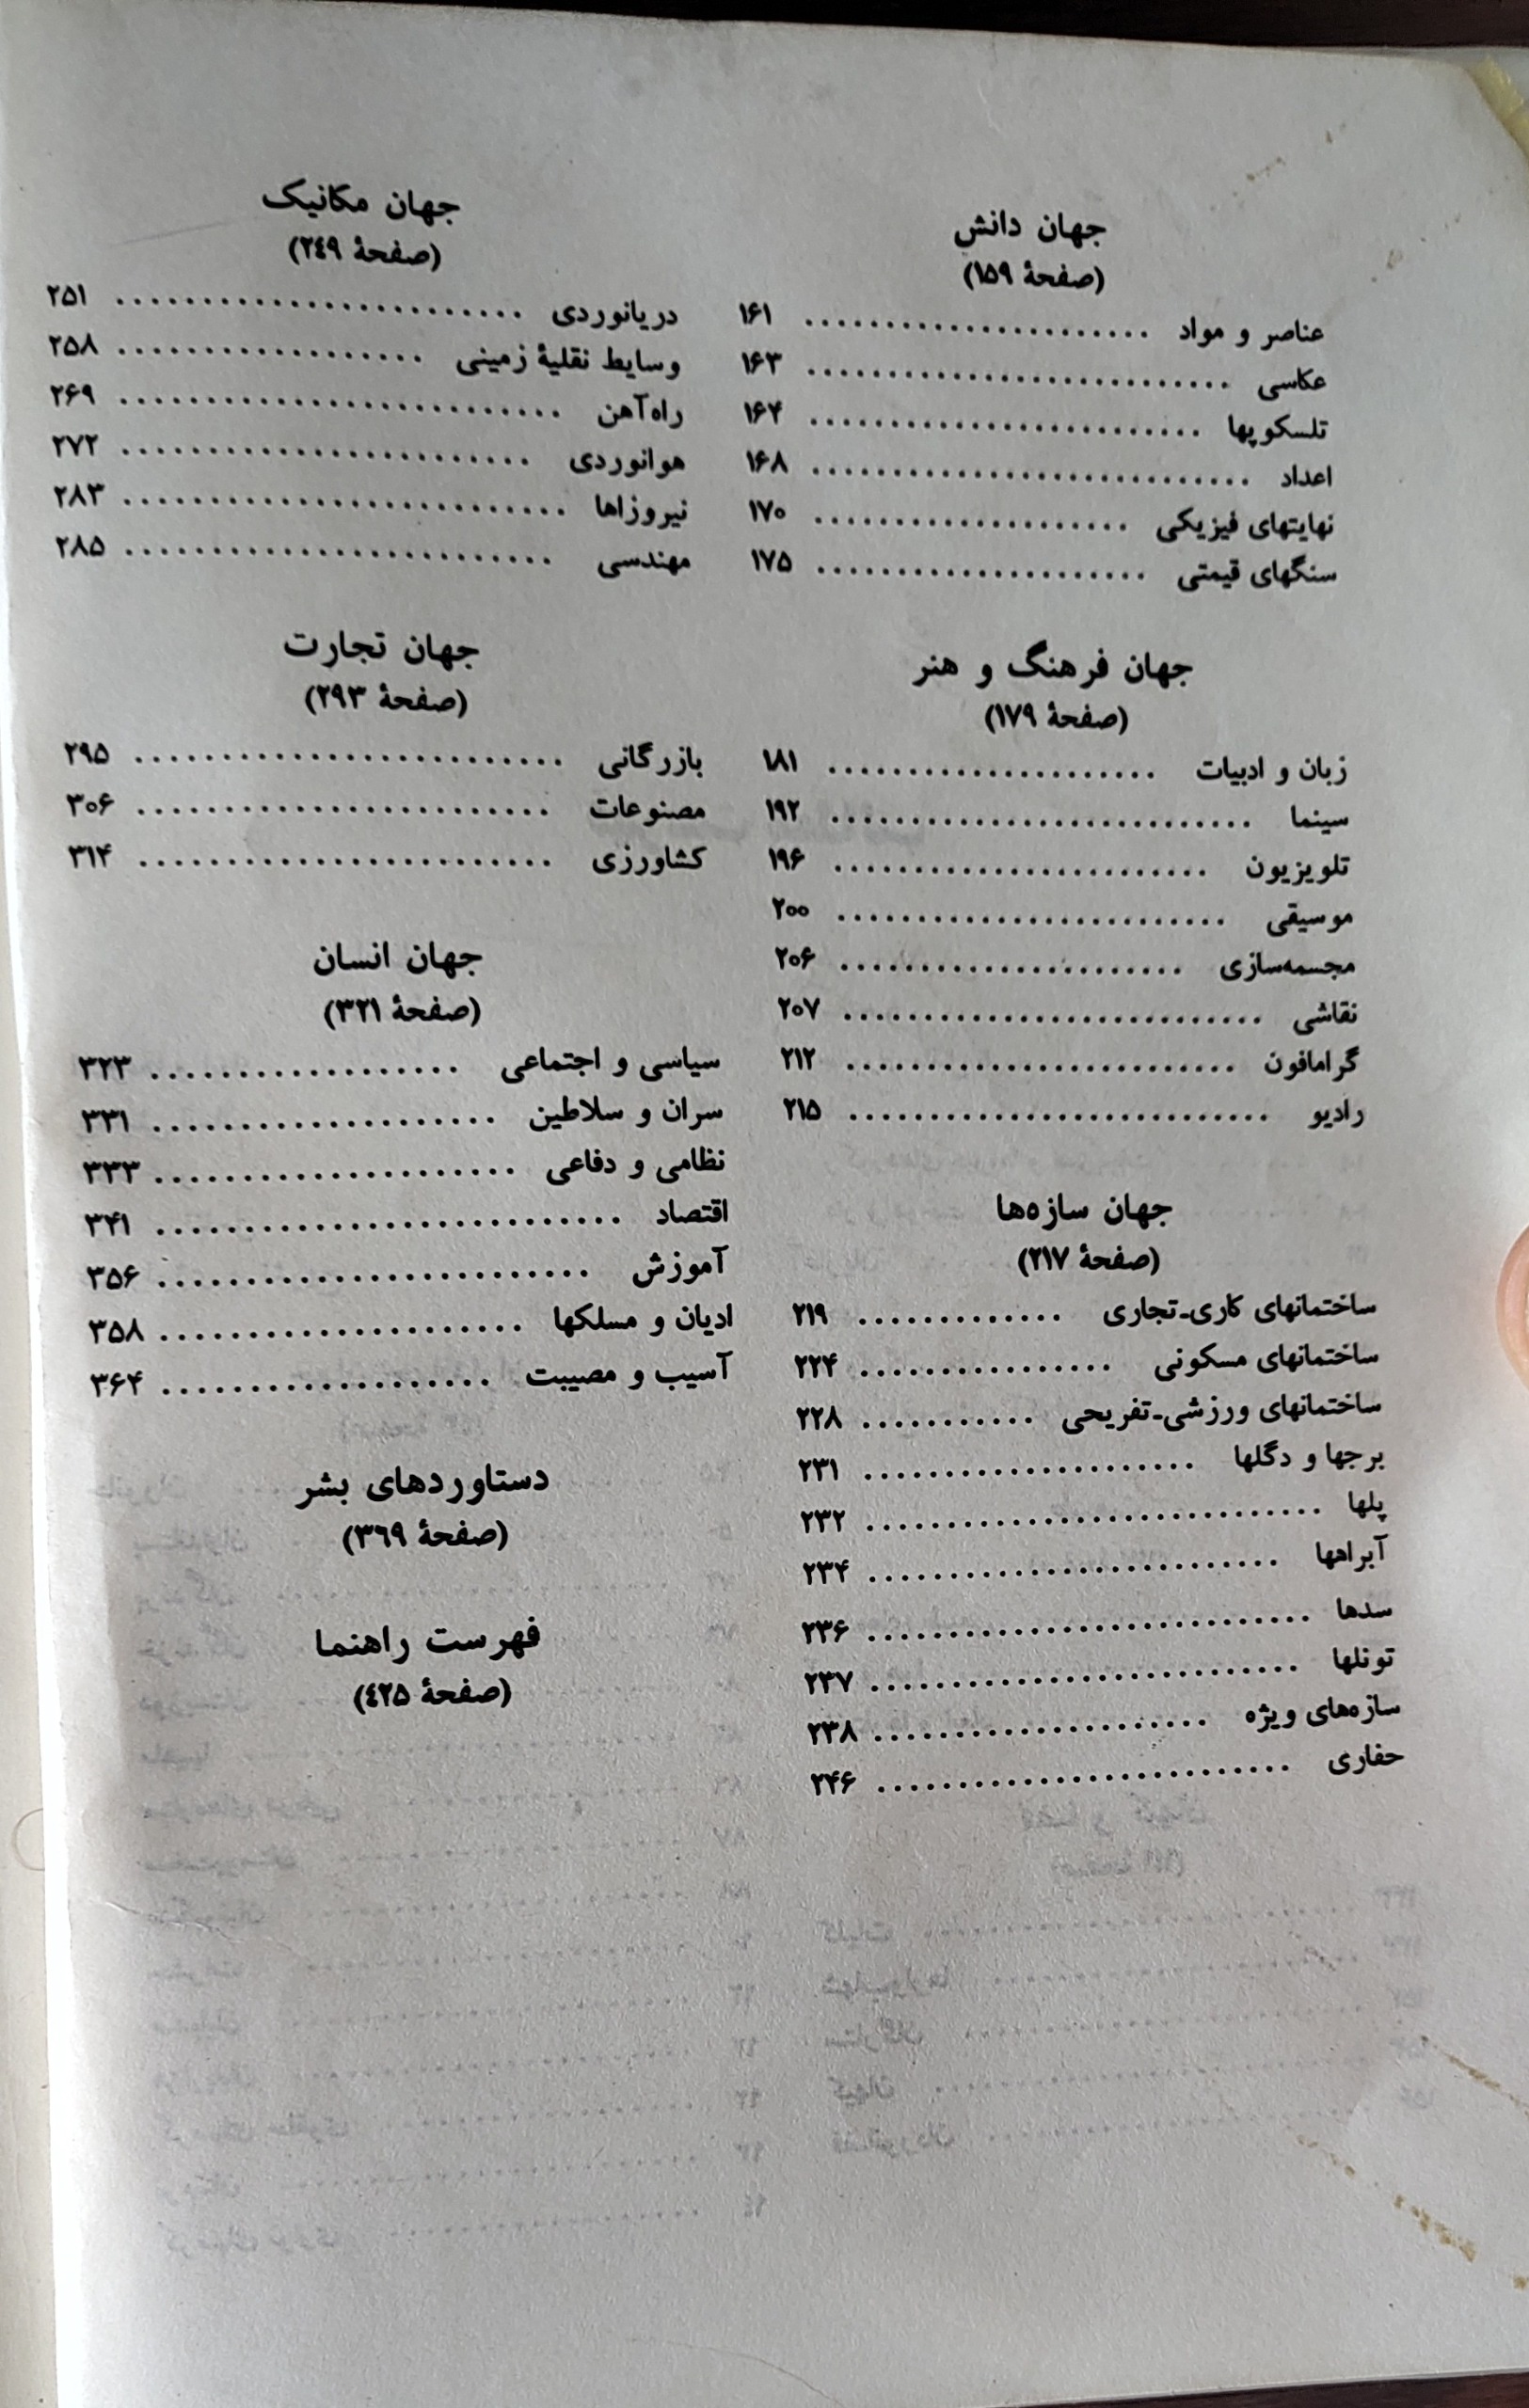 جهان دانش
(صفحهٔ ۱۵۹)
عناصر و مواد ........................ ۱۶۱
عکاسی ........................ ۱۶۳
تلسکوپها ........................ ۱۶۴
اعداد ........................ ۱۶۸
نهایتهای فیزیکی ........................ ۱۷۰
سنگهای قیمتی ........................ ۱۷۵
جهان فرهنگ و هنر
(صفحهٔ ۱۷۹)
زبان و ادبیات ........................ ۱۸۱
سینما ........................ ۱۹۲
تلویزیون ........................ ۱۹۶
موسیقی ........................ ۲۰۰
مجسمه‌سازی ........................ ۲۰۶
نقاشی ........................ ۲۰۷
گرامافون ........................ ۲۱۲
رادیو ........................ ۲۱۵
جهان سازه‌ها
(صفحهٔ ۲۱۷)
ساختمانهای کاری-تجاری ............. ۲۱۹
ساختمانهای مسکونی ................ ۲۲۴
ساختمانهای ورزشی-تفریحی ........... ۲۲۸
برجها و دگلها ........................ ۲۳۱
پلها ........................ ۲۳۲
آبراهها ........................ ۲۳۴
سدها ........................ ۲۳۶
تونلها ........................ ۲۳۷
سازه‌های ویژه ........................ ۲۳۸
حفاری ........................ ۲۴۶
جهان مکانیک
(صفحهٔ ۲٤۹)
دریانوردی ........................ ۲۵۱
وسایط نقلیهٔ زمینی ................... ۲۵۸
راه‌آهن ........................ ۲۶۹
هوانوردی ........................ ۲۷۲
نیروزاها ........................ ۲۸۳
مهندسی ........................ ۲۸۵
جهان تجارت
(صفحهٔ ۲۹۳)
بازرگانی ........................ ۲۹۵
مصنوعات ........................ ۳۰۶
کشاورزی ........................ ۳۱۴
جهان انسان
(صفحهٔ ۳۲۱)
سیاسی و اجتماعی .................. ۳۲۳
سران و سلاطین .................... ۳۳۱
نظامی و دفاعی ..................... ۳۳۳
اقتصاد ........................ ۳۴۱
آموزش ........................ ۳۵۶
ادیان و مسلکها ..................... ۳۵۸
آسیب و مصیبت .................... ۳۶۴
دستاوردهای بشر
(صفحهٔ ۳٦۹)
فهرست راهنما
(صفحهٔ ٤۲۵)